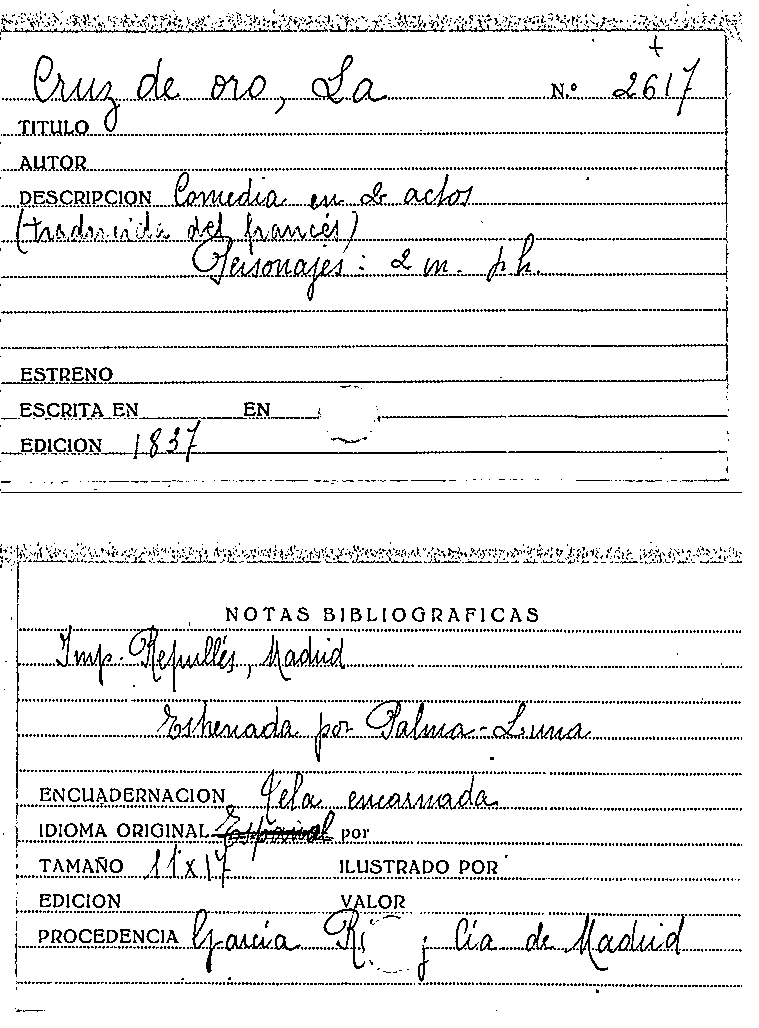 +
Cruz de oro, La N.º 2617
TITULO
AUTOR
DESCRIPCION Comedia en 2 actos
(traducida del francés)
Personajes: 2 m. ph.
ESTRENO
ESCRITA EN EN
EDICION 1837
NOTAS BIBLIOGRAFICAS
Imp. Repullés, Madrid
Estrenada por Palma-Luna
ENCUADERNACION Tela encarnada
IDIOMA ORIGINAL Español por
TAMAÑO 11x17 ILUSTRADO POR
EDICION VALOR
PROCEDENCIA García Cía de Madrid